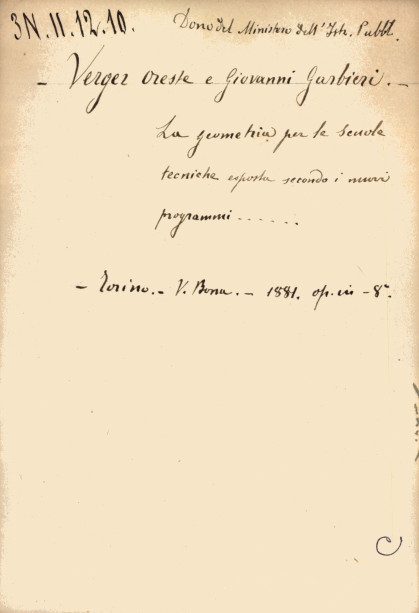 3N.II.12.10. Dono del Ministero dell' Istr. Pubbl.
– Verger Oreste e Giovanni Garbieri. –
La geometria per le scuole
tecniche esposta secondo i nuovi
programmi . . . . . .
– Torino. – V. Bona. – 1881. op. in – 8°.